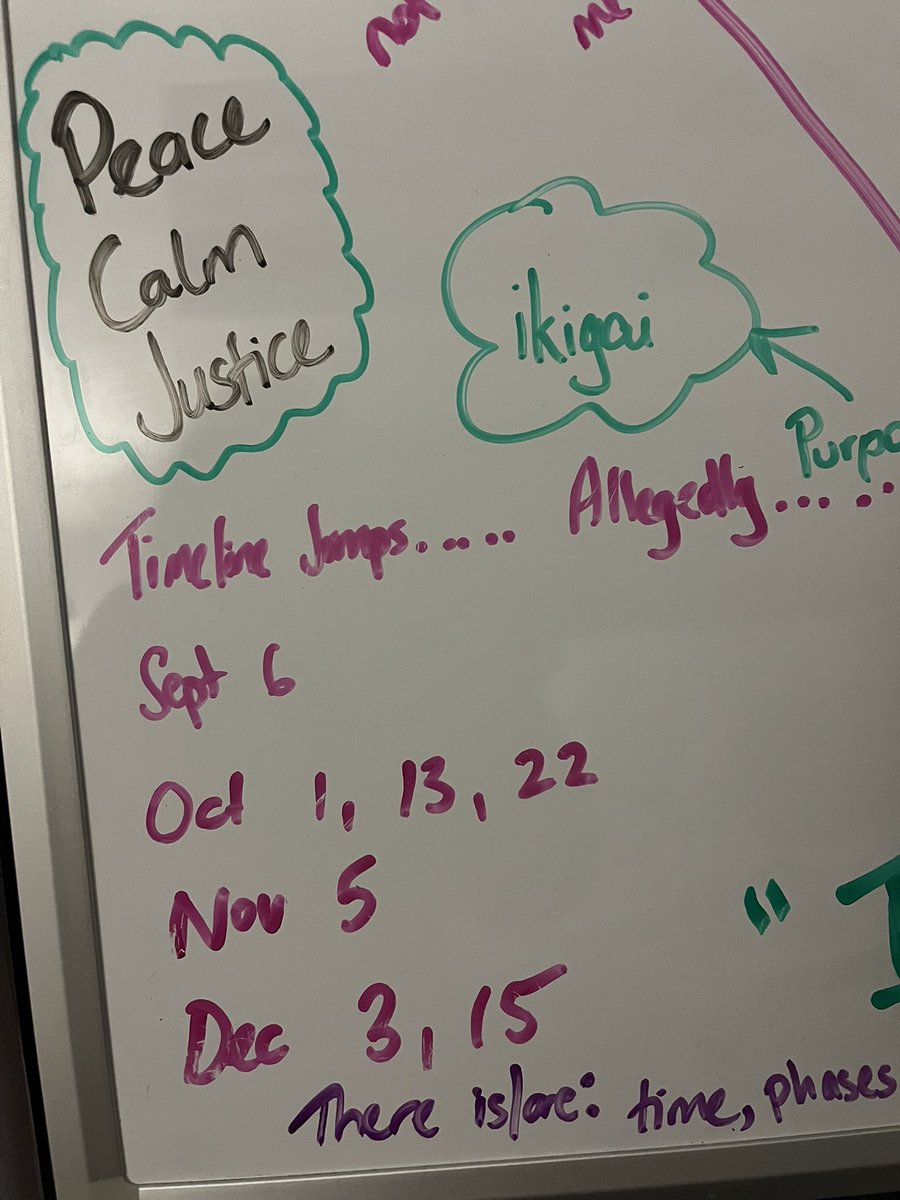 not me
Peace
Calm
Justice
ikigai
Purpo
Timeline Jumps..... Allegedly... ..
Sept 6
Oct 1, 13, 22
Nov 5
" I
Dec 3, 15
There is/are: time, phases